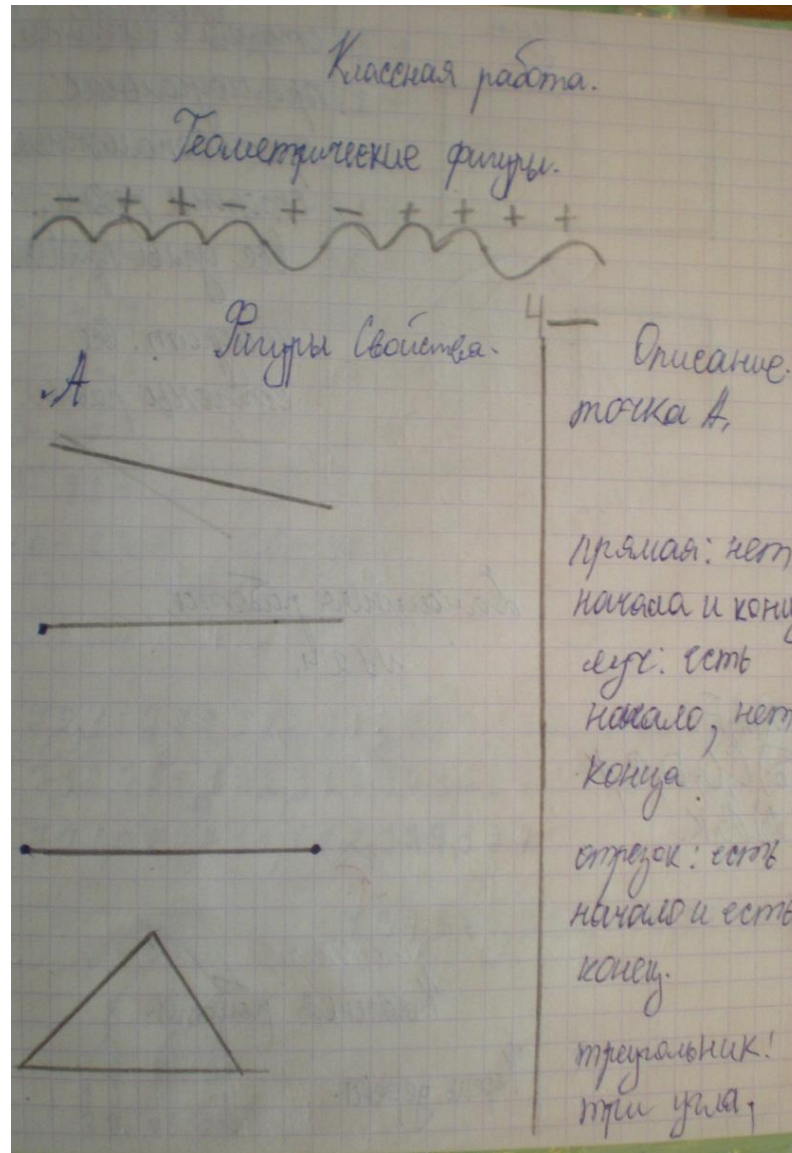 Классная работа.
Геометрические фигуры.
- + + - + - + + + +
4 —
Фигуры Свойства.
Описание.
. А
точка А,
прямая: нет
начала и конц
луч: есть
начало, нет
конца
отрезок: есть
начало и есть
конец.
треугольник!
три угла,